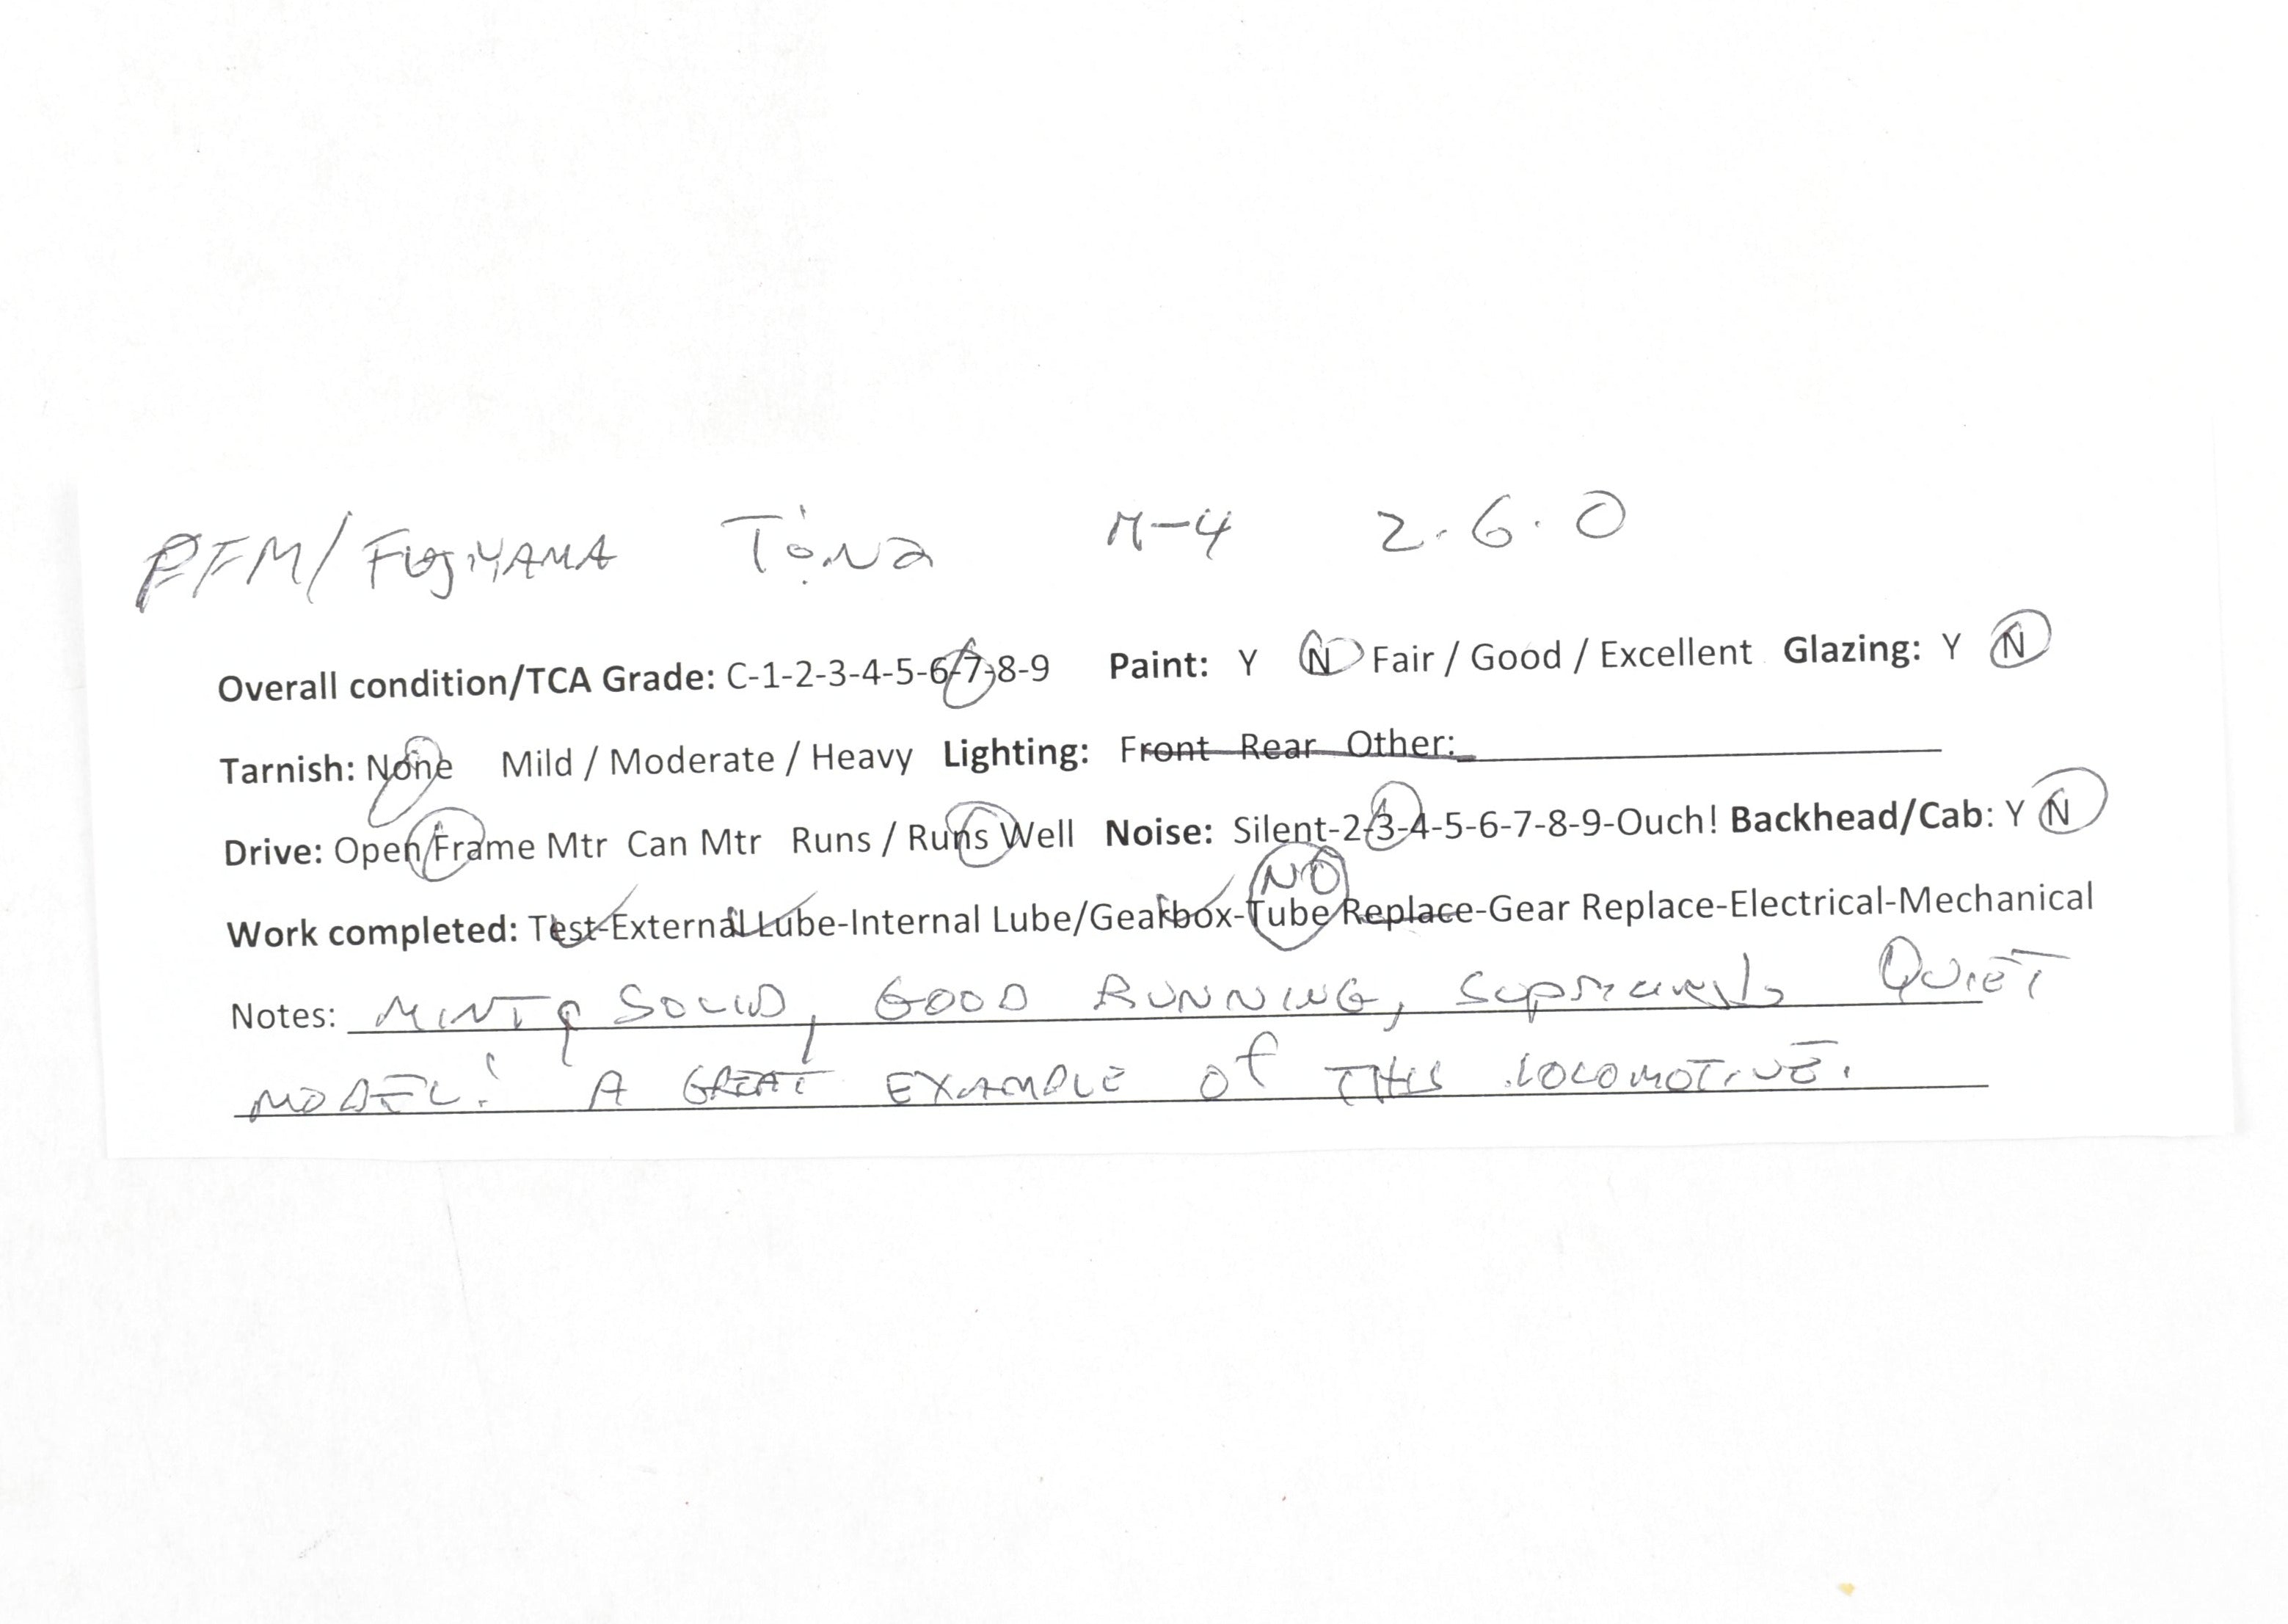 PFM/FUJIYAMA M-4 2-6-0
Overall condition/TCA Grade: C-1-2-3-4-5-6-7-8-9 Paint: Y N Fair / Good / Excellent Glazing: Y N
Tarnish: None Mild / Moderate / Heavy Lighting: Front Rear Other:
Drive: Open Frame Mtr Can Mtr Runs / Runs Well Noise: Silent-2-3-4-5-6-7-8-9-Ouch! Backhead/Cab: Y N
NO
Work completed: Test-External Lube-Internal Lube/Gearbox-Tube Replace-Gear Replace-Electrical-Mechanical
Notes: MINTY SOLID, GOOD RUNNING, Supremely QUIET
MODEL! A GREAT EXAMPLE of THIS LOCOMOTIVE.